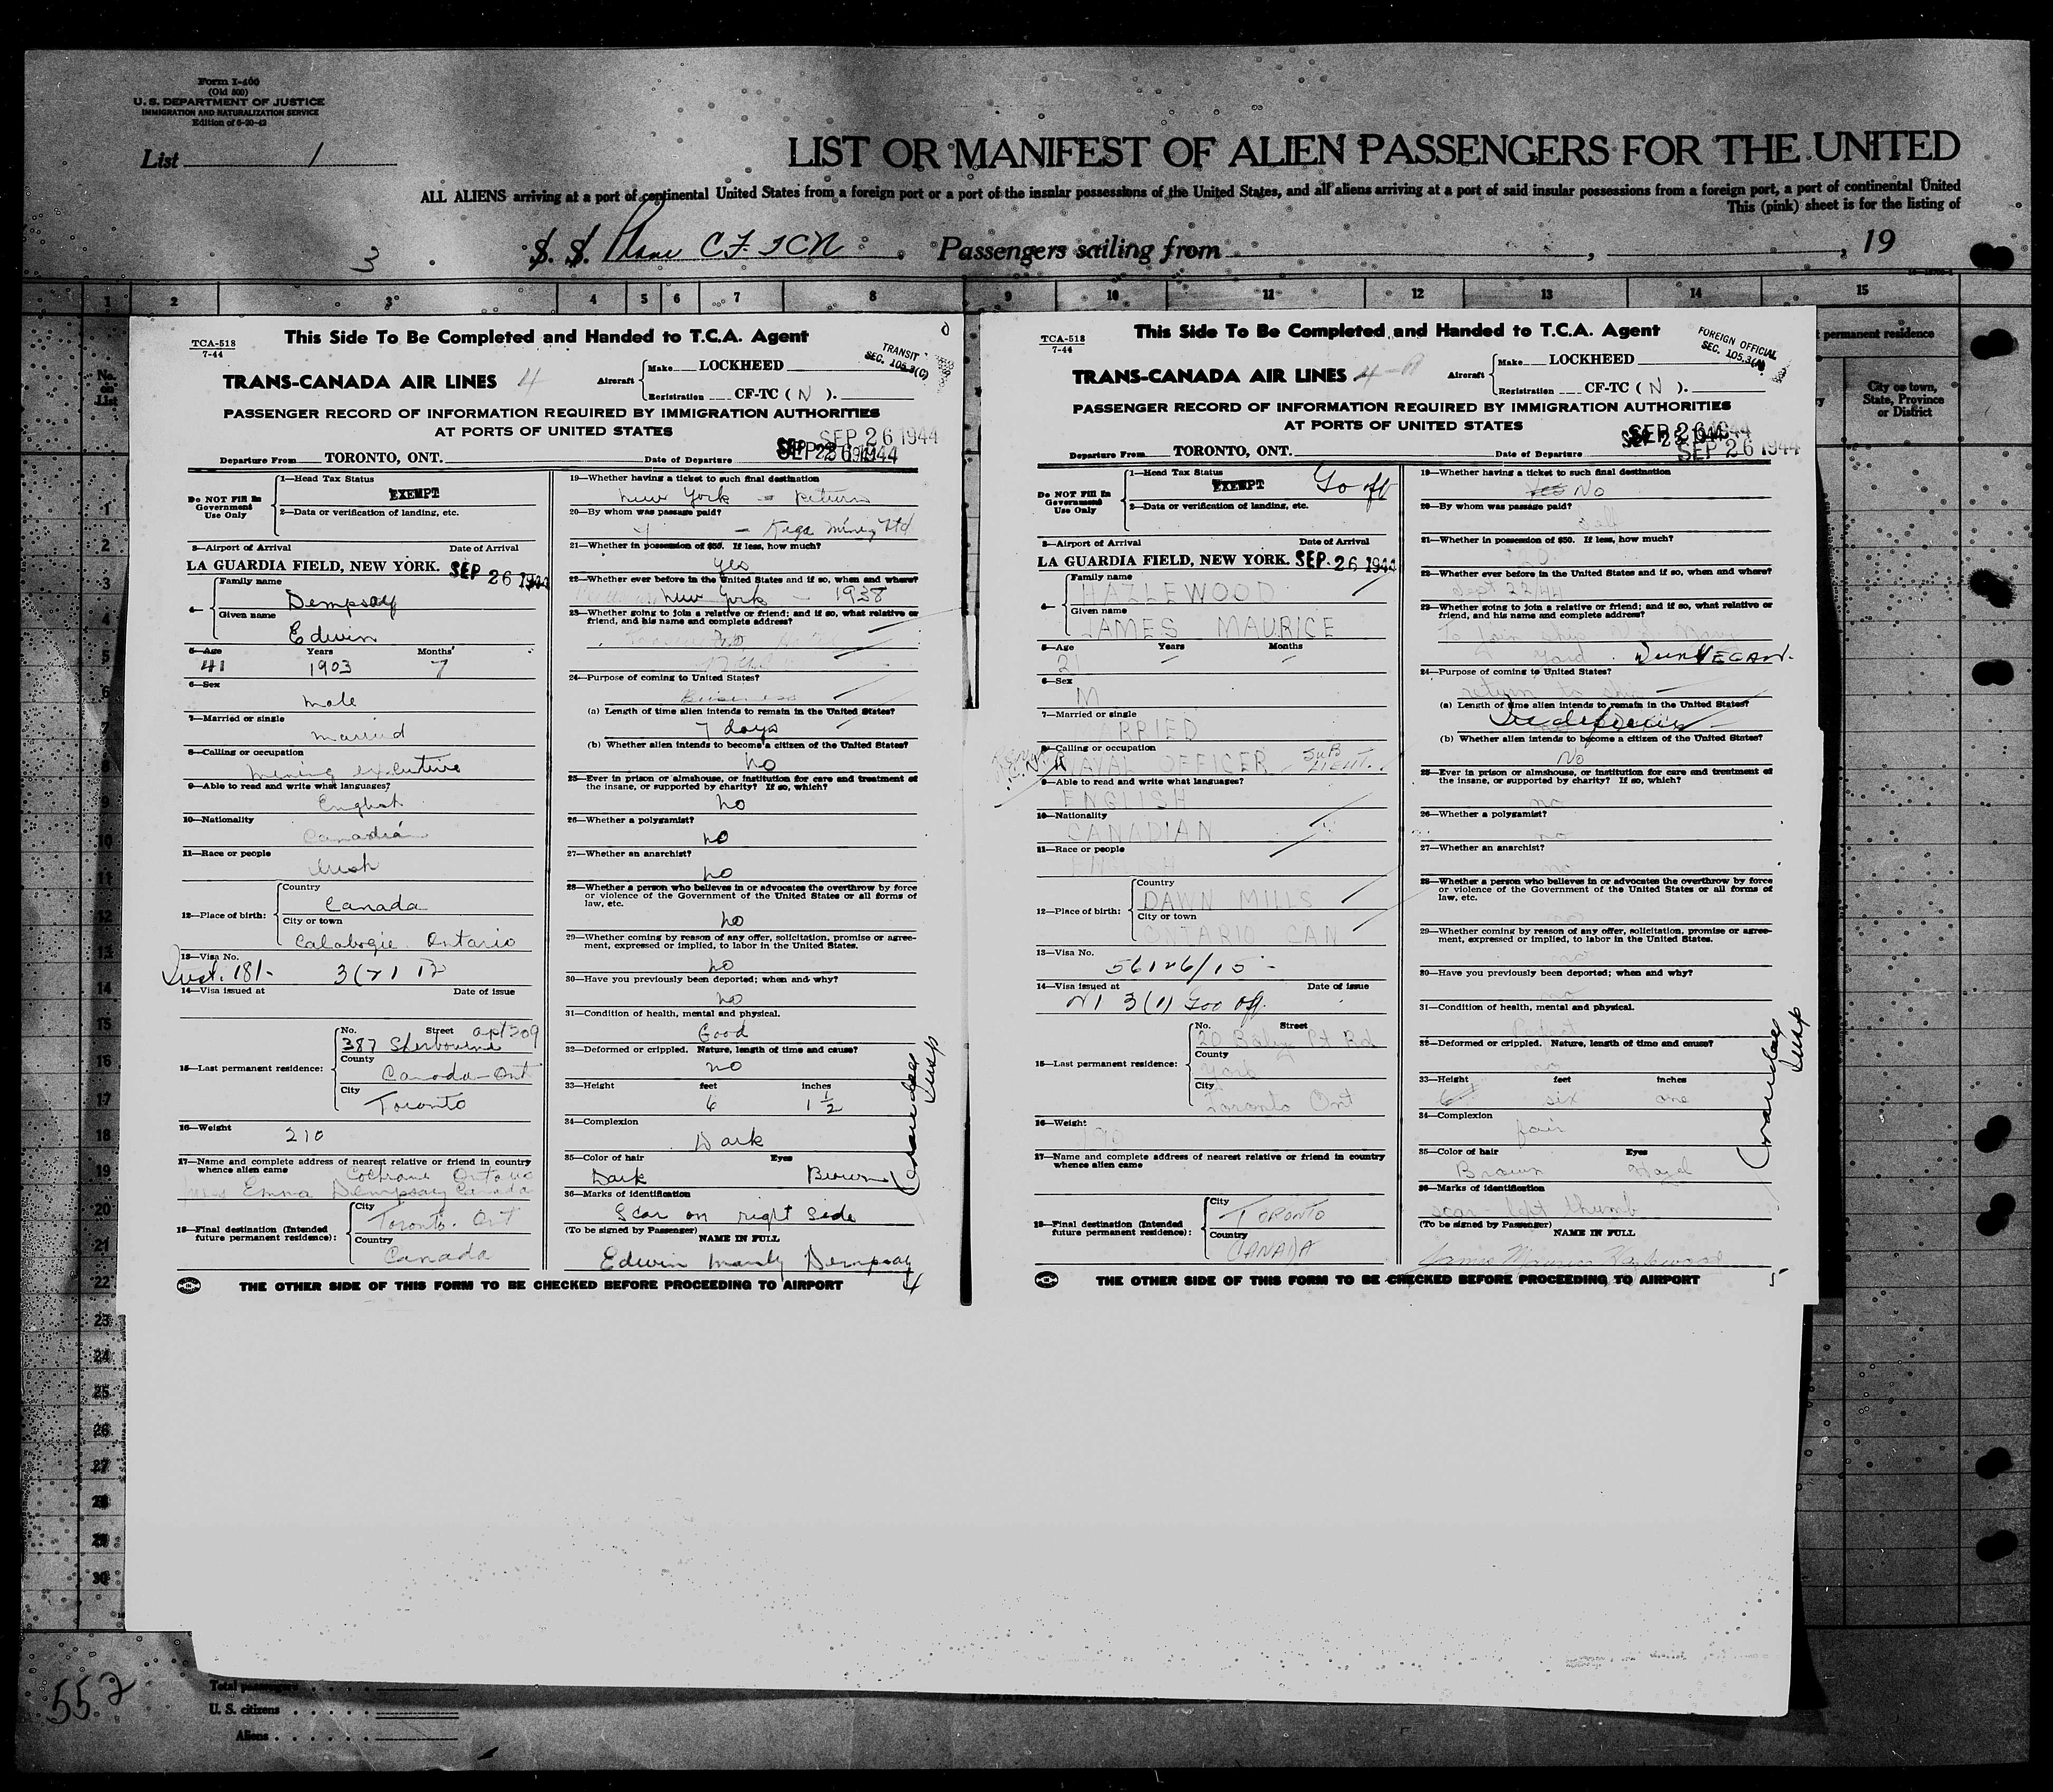 Form I-400
(Old 500)
U. S. DEPARTMENT OF JUSTICE
IMMIGRATION AND NATURALIZATION SERVICE
Edition of 6-20-42
List 1
LIST OR MANIFEST OF ALIEN PASSENGERS FOR THE UNITED
ALL ALIENS arriving at a port of continental United States from a foreign port or a port of the insular possessions of the United States, and all aliens arriving at a port of said insular possessions from a foreign port, a port of continental United
This (pink) sheet is for the listing of
3 S. S. Plane CF TCN Passengers sailing from , 19
1 2 3 4 5 6 7 8 9 10 11 12 13 14 15
No. on List
permanent residence
City or town, State, Province or District
This Side To Be Completed and Handed to T.C.A. Agent
TCA-518
7-44
TRANSIT
SEC. 105.3(C)
TRANS-CANADA AIR LINES 4
Aircraft Make LOCKHEED
Registration CF-TC ( N ).
PASSENGER RECORD OF INFORMATION REQUIRED BY IMMIGRATION AUTHORITIES
AT PORTS OF UNITED STATES
SEP 26 1944
Departure From TORONTO, ONT. Date of Departure
Do NOT Fill In Government Use Only
1—Head Tax Status
EXEMPT
2—Data or verification of landing, etc.
3—Airport of Arrival Date of Arrival
LA GUARDIA FIELD, NEW YORK. SEP 26 1944
4— Family name
Dempsay
Given name
Edwin
5—Age Years Months
41 1903 7
6—Sex
male
7—Married or single
married
8—Calling or occupation
mining executive
9—Able to read and write what languages?
English
10—Nationality
Canadian
11—Race or people
Irish
12—Place of birth: Country
Canada
City or town
Calabogie Ontario
13—Visa No.
181- 3(2)
14—Visa issued at Date of issue
15—Last permanent residence: No. Street apt 309
387 Sherbourne
County
Canada-Ont
City
Toronto
16—Weight
210
17—Name and complete address of nearest relative or friend in country whence alien came
Cochrane Ontario
Emma Dempsay Canada
18—Final destination (Intended future permanent residence): City
Toronto. Ont
Country
Canada
19—Whether having a ticket to such final destination
New York - Return
20—By whom was passage paid?
Mining Ltd
21—Whether in possession of $50. If less, how much?
yes
22—Whether ever before in the United States and if so, when and where?
New York - 1938
23—Whether going to join a relative or friend; and if so, what relative or friend, and his name and complete address?
no
24—Purpose of coming to United States?
Business
(a) Length of time alien intends to remain in the United States?
7 days
(b) Whether alien intends to become a citizen of the United States?
no
25—Ever in prison or almshouse, or institution for care and treatment of the insane, or supported by charity? If so, which?
no
26—Whether a polygamist?
no
27—Whether an anarchist?
no
28—Whether a person who believes in or advocates the overthrow by force or violence of the Government of the United States or all forms of law, etc.
no
29—Whether coming by reason of any offer, solicitation, promise or agreement, expressed or implied, to labor in the United States.
no
30—Have you previously been deported; when and why?
no
31—Condition of health, mental and physical.
Good
32—Deformed or crippled. Nature, length of time and cause?
no
33—Height feet inches
6 1 ½
34—Complexion
Dark
35—Color of hair Eyes
Dark Brown
36—Marks of identification
Scar on right side
(To be signed by Passenger)
NAME IN FULL
Edwin Manly Dempsay
4
Insp
THE OTHER SIDE OF THIS FORM TO BE CHECKED BEFORE PROCEEDING TO AIRPORT
This Side To Be Completed and Handed to T.C.A. Agent
TCA-518
7-44
FOREIGN OFFICIAL
SEC. 105.3(A)
TRANS-CANADA AIR LINES 4
Aircraft Make LOCKHEED
Registration CF-TC ( N ).
PASSENGER RECORD OF INFORMATION REQUIRED BY IMMIGRATION AUTHORITIES
AT PORTS OF UNITED STATES
SEP 26 1944
Departure From TORONTO, ONT. Date of Departure
Do NOT Fill In Government Use Only
1—Head Tax Status
EXEMPT Go off
2—Data or verification of landing, etc.
3—Airport of Arrival Date of Arrival
LA GUARDIA FIELD, NEW YORK. SEP. 26 1944
4— Family name
HAZLEWOOD
Given name
JAMES MAURICE
5—Age Years Months
21 - -
6—Sex
M
7—Married or single
MARRIED
8—Calling or occupation
NAVAL OFFICER SUB LIEUT.
9—Able to read and write what languages?
ENGLISH
10—Nationality
CANADIAN
11—Race or people
12—Place of birth: Country
DAWN MILLS
City or town
ONTARIO CAN
13—Visa No.
56126/15-
14—Visa issued at Date of issue
3(1) Goo off.
15—Last permanent residence: No. Street
20 Baby Pt Rd
County
York
City
Toronto Ont
16—Weight
190
17—Name and complete address of nearest relative or friend in country whence alien came
18—Final destination (Intended future permanent residence): City
TORONTO
Country
CANADA
19—Whether having a ticket to such final destination
Yes No
20—By whom was passage paid?
Self
21—Whether in possession of $50. If less, how much?
22—Whether ever before in the United States and if so, when and where?
Sept 22/44
23—Whether going to join a relative or friend; and if so, what relative or friend, and his name and complete address?
To join ship Navy
Yard. DUNVEGAN.
24—Purpose of coming to United States?
return to ship
(a) Length of time alien intends to remain in the United States?
Indefinite
(b) Whether alien intends to become a citizen of the United States?
No
25—Ever in prison or almshouse, or institution for care and treatment of the insane, or supported by charity? If so, which?
no
26—Whether a polygamist?
no
27—Whether an anarchist?
no
28—Whether a person who believes in or advocates the overthrow by force or violence of the Government of the United States or all forms of law, etc.
no
29—Whether coming by reason of any offer, solicitation, promise or agreement, expressed or implied, to labor in the United States.
no
30—Have you previously been deported; when and why?
no
31—Condition of health, mental and physical.
Perfect
32—Deformed or crippled. Nature, length of time and cause?
no
33—Height feet inches
6 six one
34—Complexion
fair
35—Color of hair Eyes
Brown Hazel
36—Marks of identification
scar left thumb
(To be signed by Passenger)
NAME IN FULL
James Maurice Hazlewood
5
Insp
THE OTHER SIDE OF THIS FORM TO BE CHECKED BEFORE PROCEEDING TO AIRPORT
1
2
3
4
5
6
7
8
9
10
11
12
13
14
15
16
17
18
19
20
21
22
23
24
25
26
27
28
29
30
557
Total passengers
U. S. citizens
Aliens